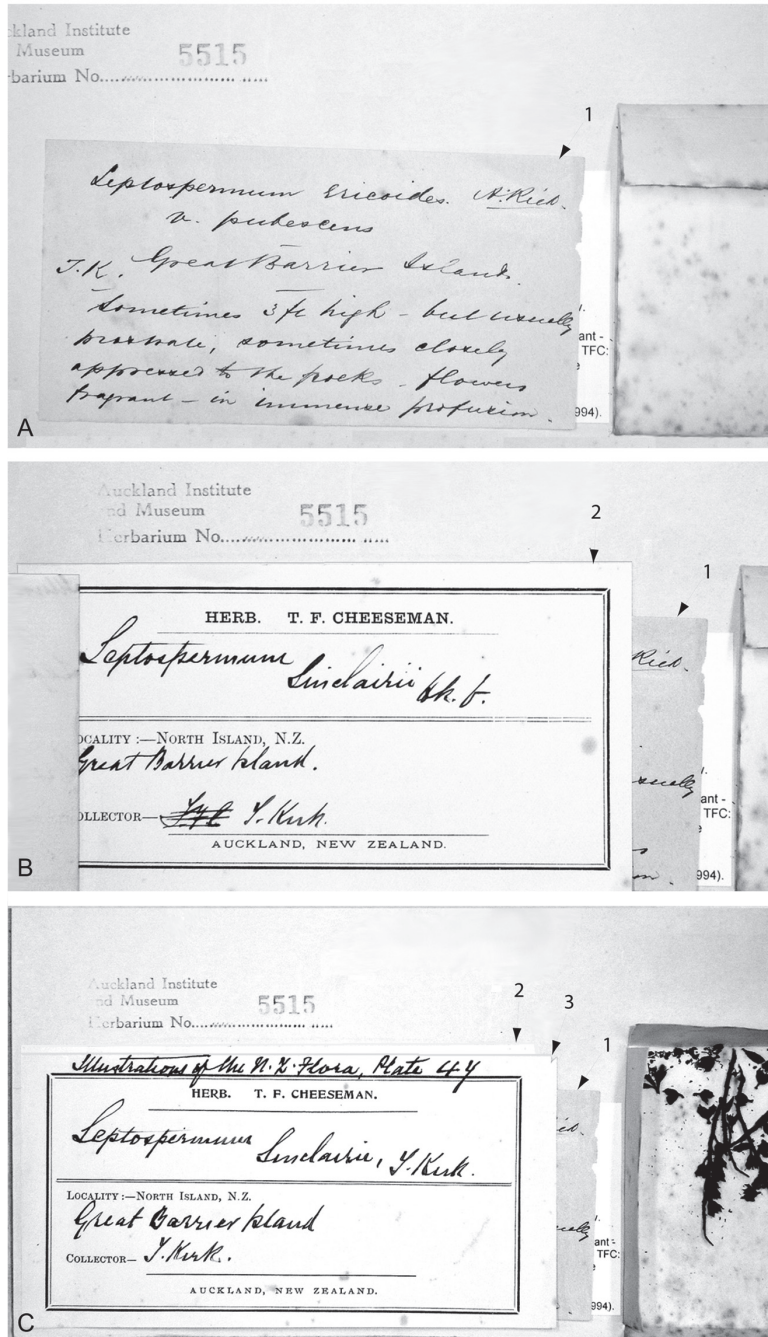 ckland Institute
Museum
rbarium No.
5515
1
Leptospermum ericoides. A. Rich.
v. pubescens
T.K. Great Barrier Island.
Sometimes 3 ft high - but usually
prostrate, sometimes closely
appressed to the rocks - flowers
fragrant - in immense profusion.
ant -
TFC:
994).
A
Auckland Institute
nd Museum
Herbarium No.
5515
2
1
HERB. T. F. CHEESEMAN.
Leptospermum
Sinclairii Hk. f.
OCALITY :—NORTH ISLAND, N.Z.
Great Barrier Island.
OLLECTOR— T. Kirk.
AUCKLAND, NEW ZEALAND.
Rich.
usually
ant -
TFC:
e
994).
B
Auckland Institute
nd Museum
Herbarium No.
5515
2
3
1
Illustrations of the N.Z. Flora, Plate 44
HERB. T. F. CHEESEMAN.
Leptospermum
Sinclairii, T. Kirk.
LOCALITY :—NORTH ISLAND, N.Z.
Great Barrier Island
COLLECTOR— T. Kirk.
AUCKLAND, NEW ZEALAND.
ually
ant -
TFC:
e
994).
C